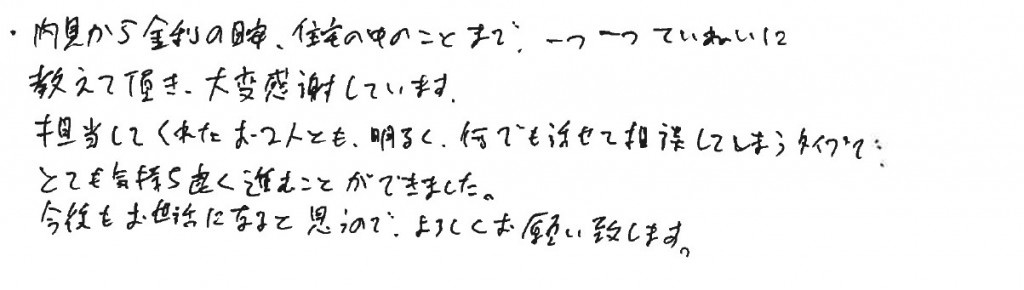 ・内見から金利の事、住宅の中のことまで、一つ一つていねいに
教えて頂き、大変感謝しています。
担当してくれたお2人とも、明るく、何でも話せて相談してしまうタイプで、
とても気持ち良く進むことができました。
今後もお世話になると思うので、よろしくお願い致します。